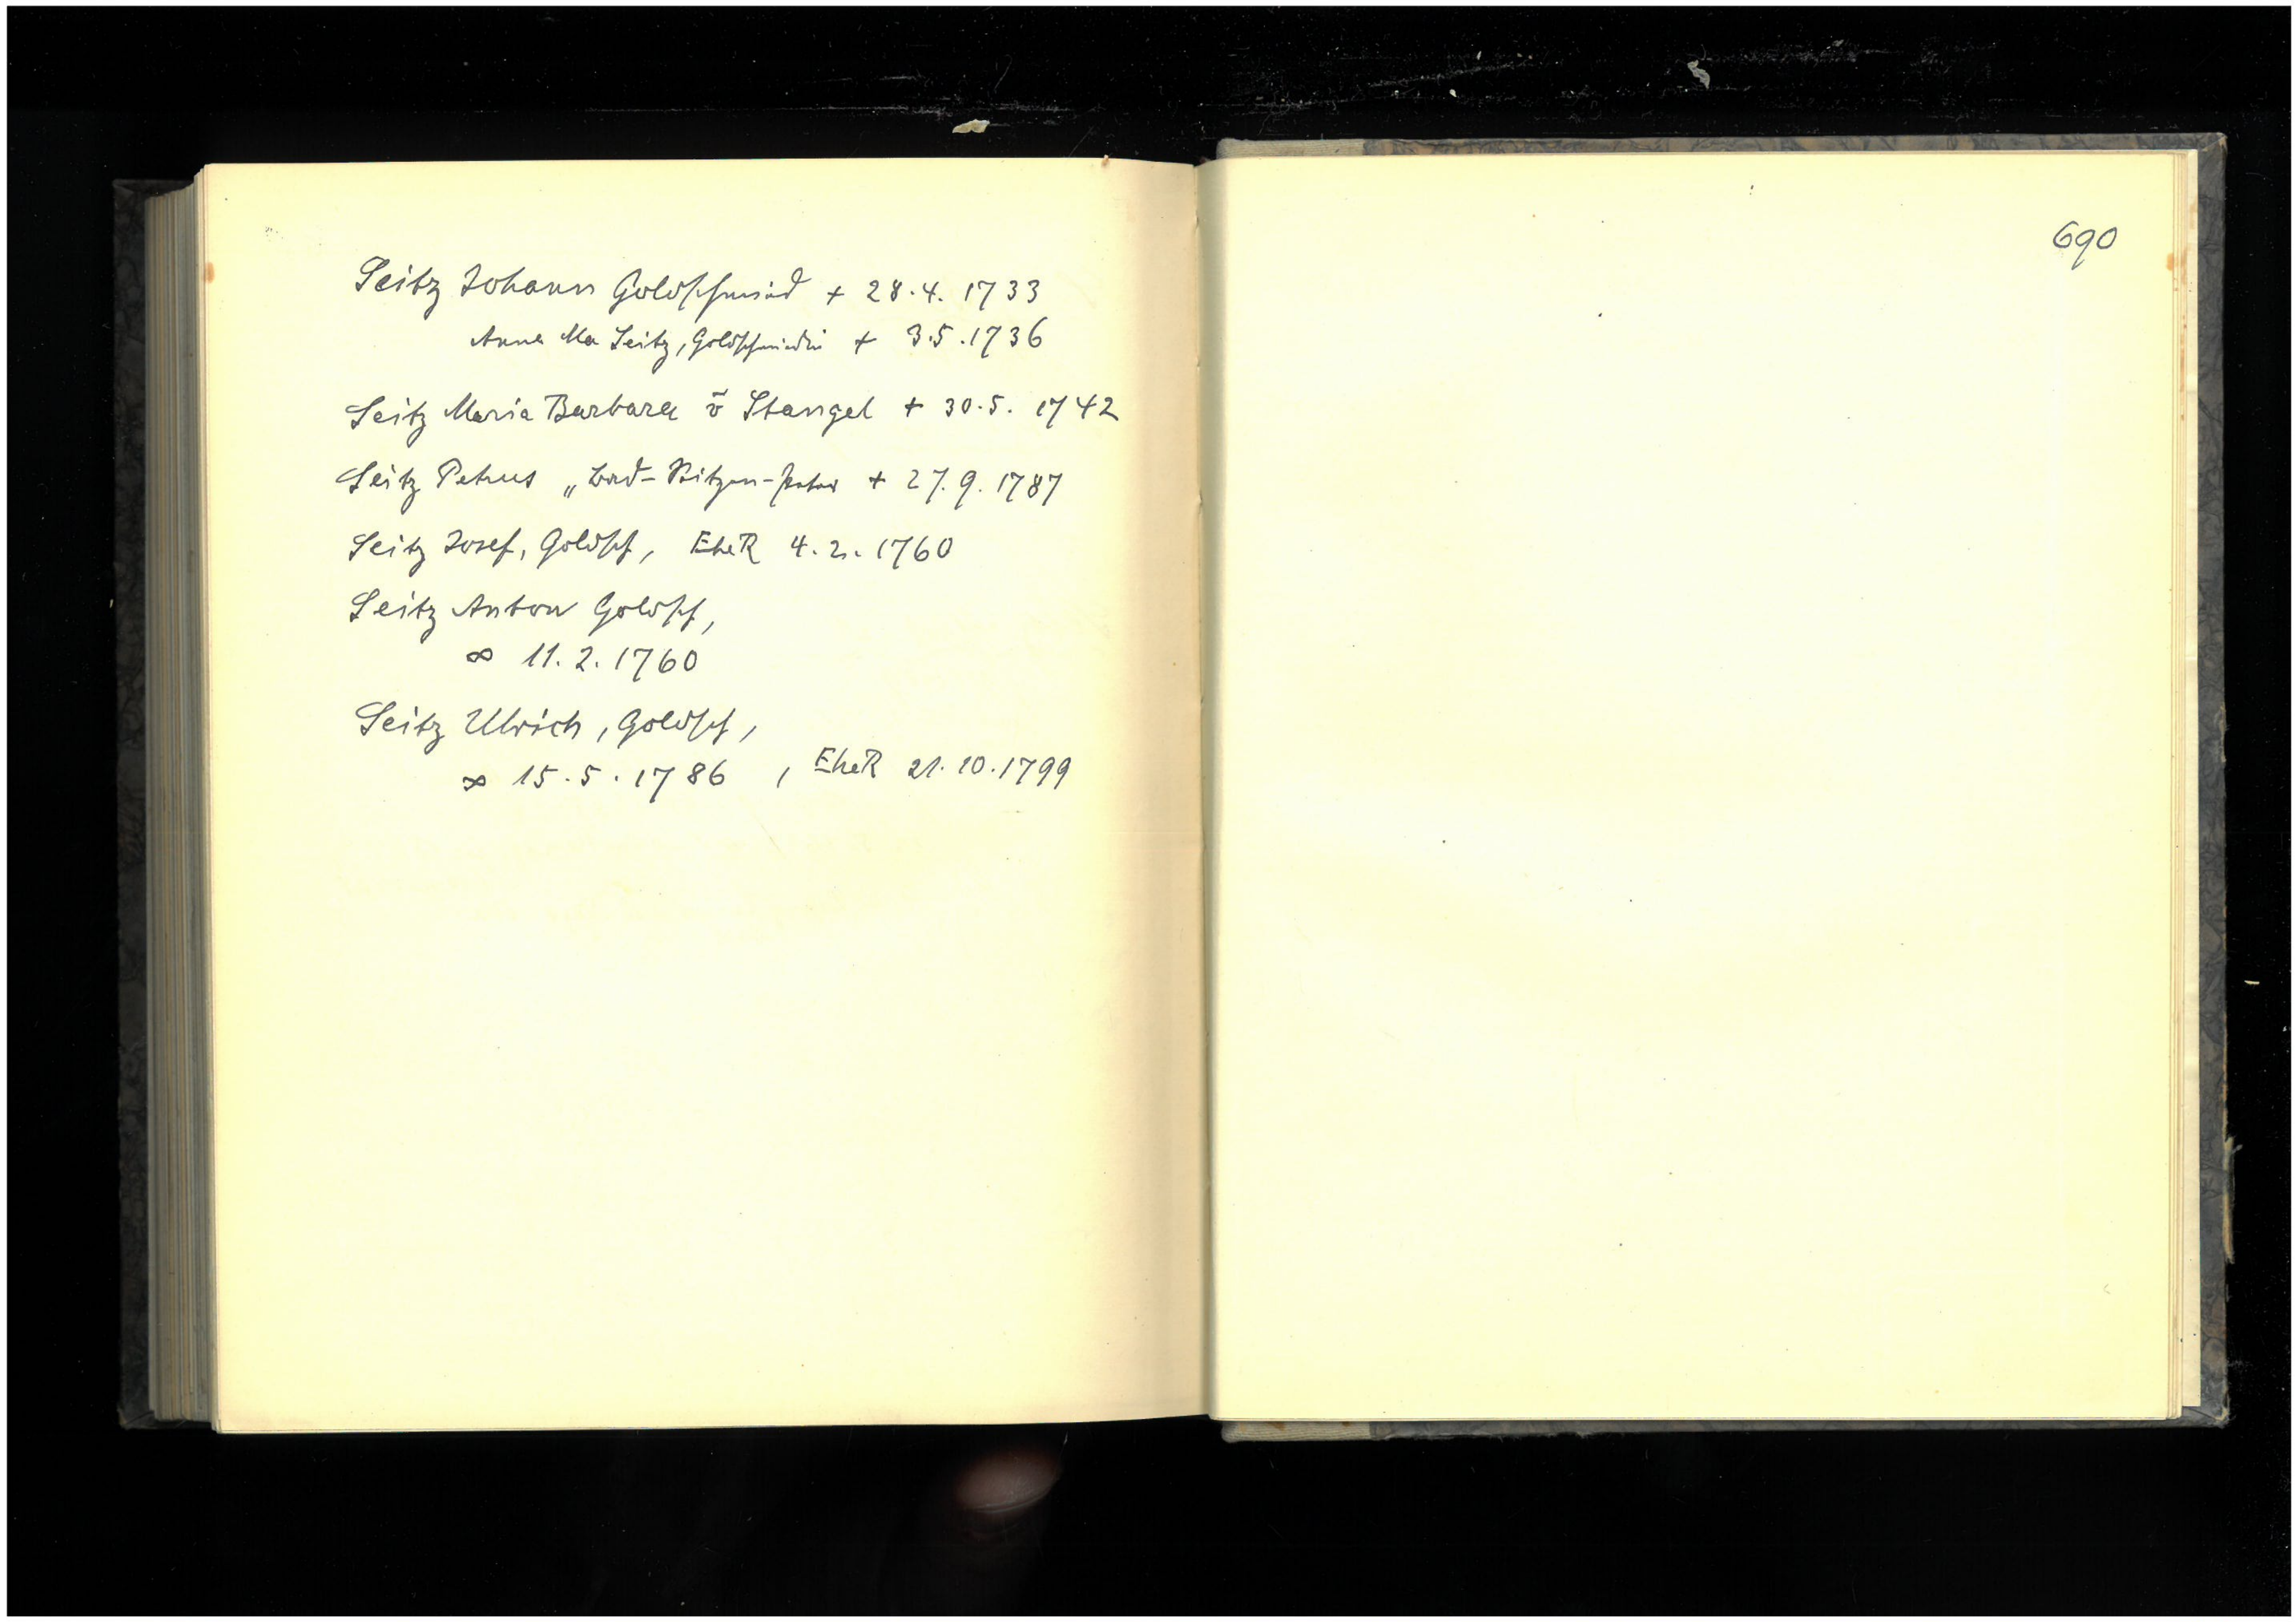 Seitz Johann Goldschmied + 28.4. 1733
Anna Ma Seitz, Goldschmiedin + 3.5.1736
Seitz Maria Barbara v Stangel + 30.5. 1742
Seitz Petrus + 27.9. 1787
Seitz Josef, Goldsch, EheR 4.2.1760
Seitz Anton Goldsch,
∞ 11.2.1760
Seitz Ulrich, Goldsch,
∞ 15.5.1786, EheR 21.10.1799
690